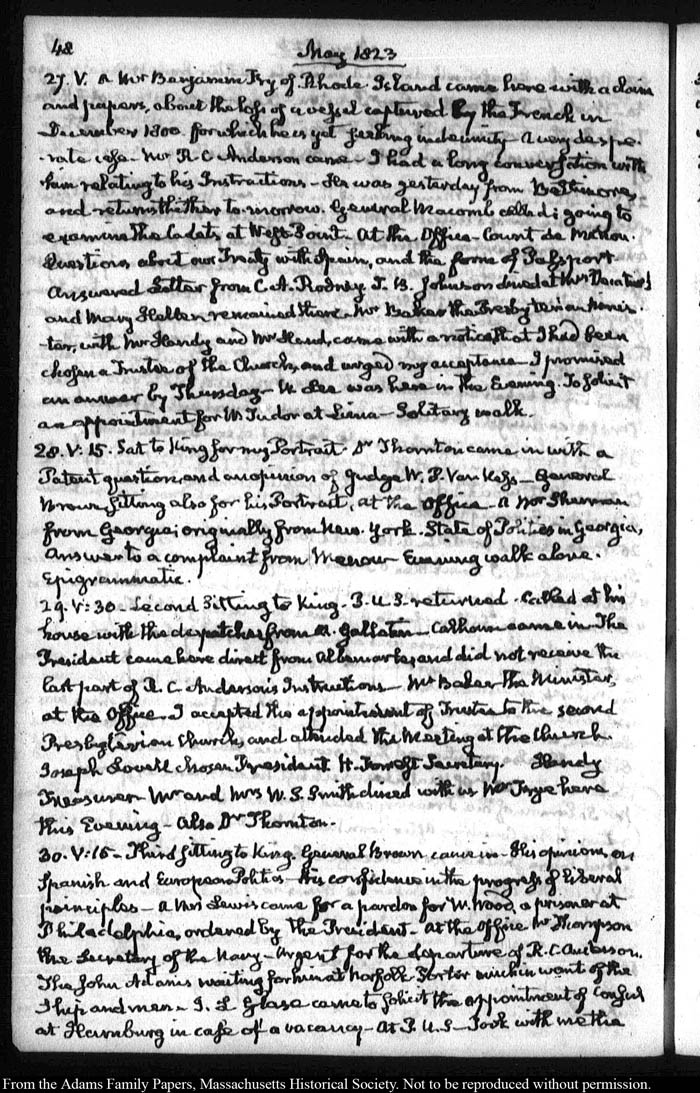 48
May 1823
27. V. A Mr Benjamin Fry of Rhode Island came here with a claim
and papers, about the loss of a vessel captured by the French in
December 1800. for which he is yet seeking indemnity — A very despe-
-rate case — Mr R. C. Anderson came — I had a long conversation with
him relating to his Instructions — He was yesterday from Baltimore,
and returns thither to-morrow. General Macomb called; going to
examine the Cadets at West-Point. At the Office — Count de Menou.
Questions about our Treaty with Spain, and the forms of Passport.
Answered Letter from C. A. Rodney. T. B. Johnson dined at Mrs Decatur's
and Mary Hellen remained there. Mr Baker the Presbyterian Minis-
-ter, with Mr Handy and Mr, came with a notice, that I had been
chosen a Trustee of the Church, and urged my acceptance — I promised
an answer by Thursday — W. Lee was here in the Evening. To solicit
an appointment for W. Tudor at Lima — Solitary walk.
28. V: 15. Sat to King for my Portrait. Dr Thornton came in with a
Patent question, and an opinion of Judge W. P. Van Ness — General
Brown sitting also for his Portrait. at the Office — A Mr Sherman
from Georgia; originally from New-York. State of Politics in Georgia,
Answer to a complaint from Menou — Evening walk alone.
Epigrammatic.
29. V: 30 — Second Sitting to King. P. U. S. returned. Called at his
house with the despatches from A. Gallatin — Calhoun came in — The
President came here direct from Albemarle, and did not receive the
last part of R. C. Anderson's Instructions — Mr Baker the Minister,
at the Office. I accepted the appointment of Trustee to the second
Presbyterian Church, and attended the Meeting at the Church.
Joseph Lovell chosen President H. Forrest Secretary. Handy
Treasurer — Mr and Mrs W. S. Smith dined with us Mr Frye here
this Evening — Also Dr Thornton.
30. V: 15 — Third sitting to King. General Brown came in — His opinions on
Spanish and European Politics — His confidence in the progress of liberal
principles — A Mrs Lewis came for a pardon for W. Wood, a prisoner at
Philadelphia, ordered by the President — At the Office Mr Thompson
the Secretary of the Navy — Urgent for the departure of R. C. Anderson.
The John Adams waiting for him at Norfolk. Porter much in want of the
Ship and men — J. L. came to solicit the appointment of Consul
at Hamburg in case of a vacancy — At P. U. S — Took with me the
From the Adams Family Papers, Massachusetts Historical Society. Not to be reproduced without permission.